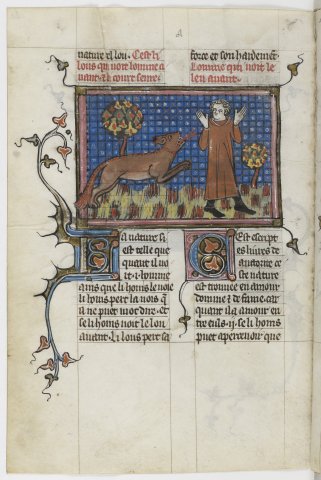 nature el lou. Cest li
lous qui voit lomme a
uant. et li court seure.
force et son hardement
Lomme qui voit le
leu auant.
La nature si
est telle que
quant il uo
it .i. homme
ains que li homs le uoie
li homs pert la uois q̄l
a ne puet mot dire. et
se li homs uoit le lou
auant. li lous pert sa
Cest escript
es liures de
auctorite ce
ste nature
est trouuee en amour
domme et de fame. car
quant il a amour en
tre euls .ij. se li homs
puet aperceuoir que